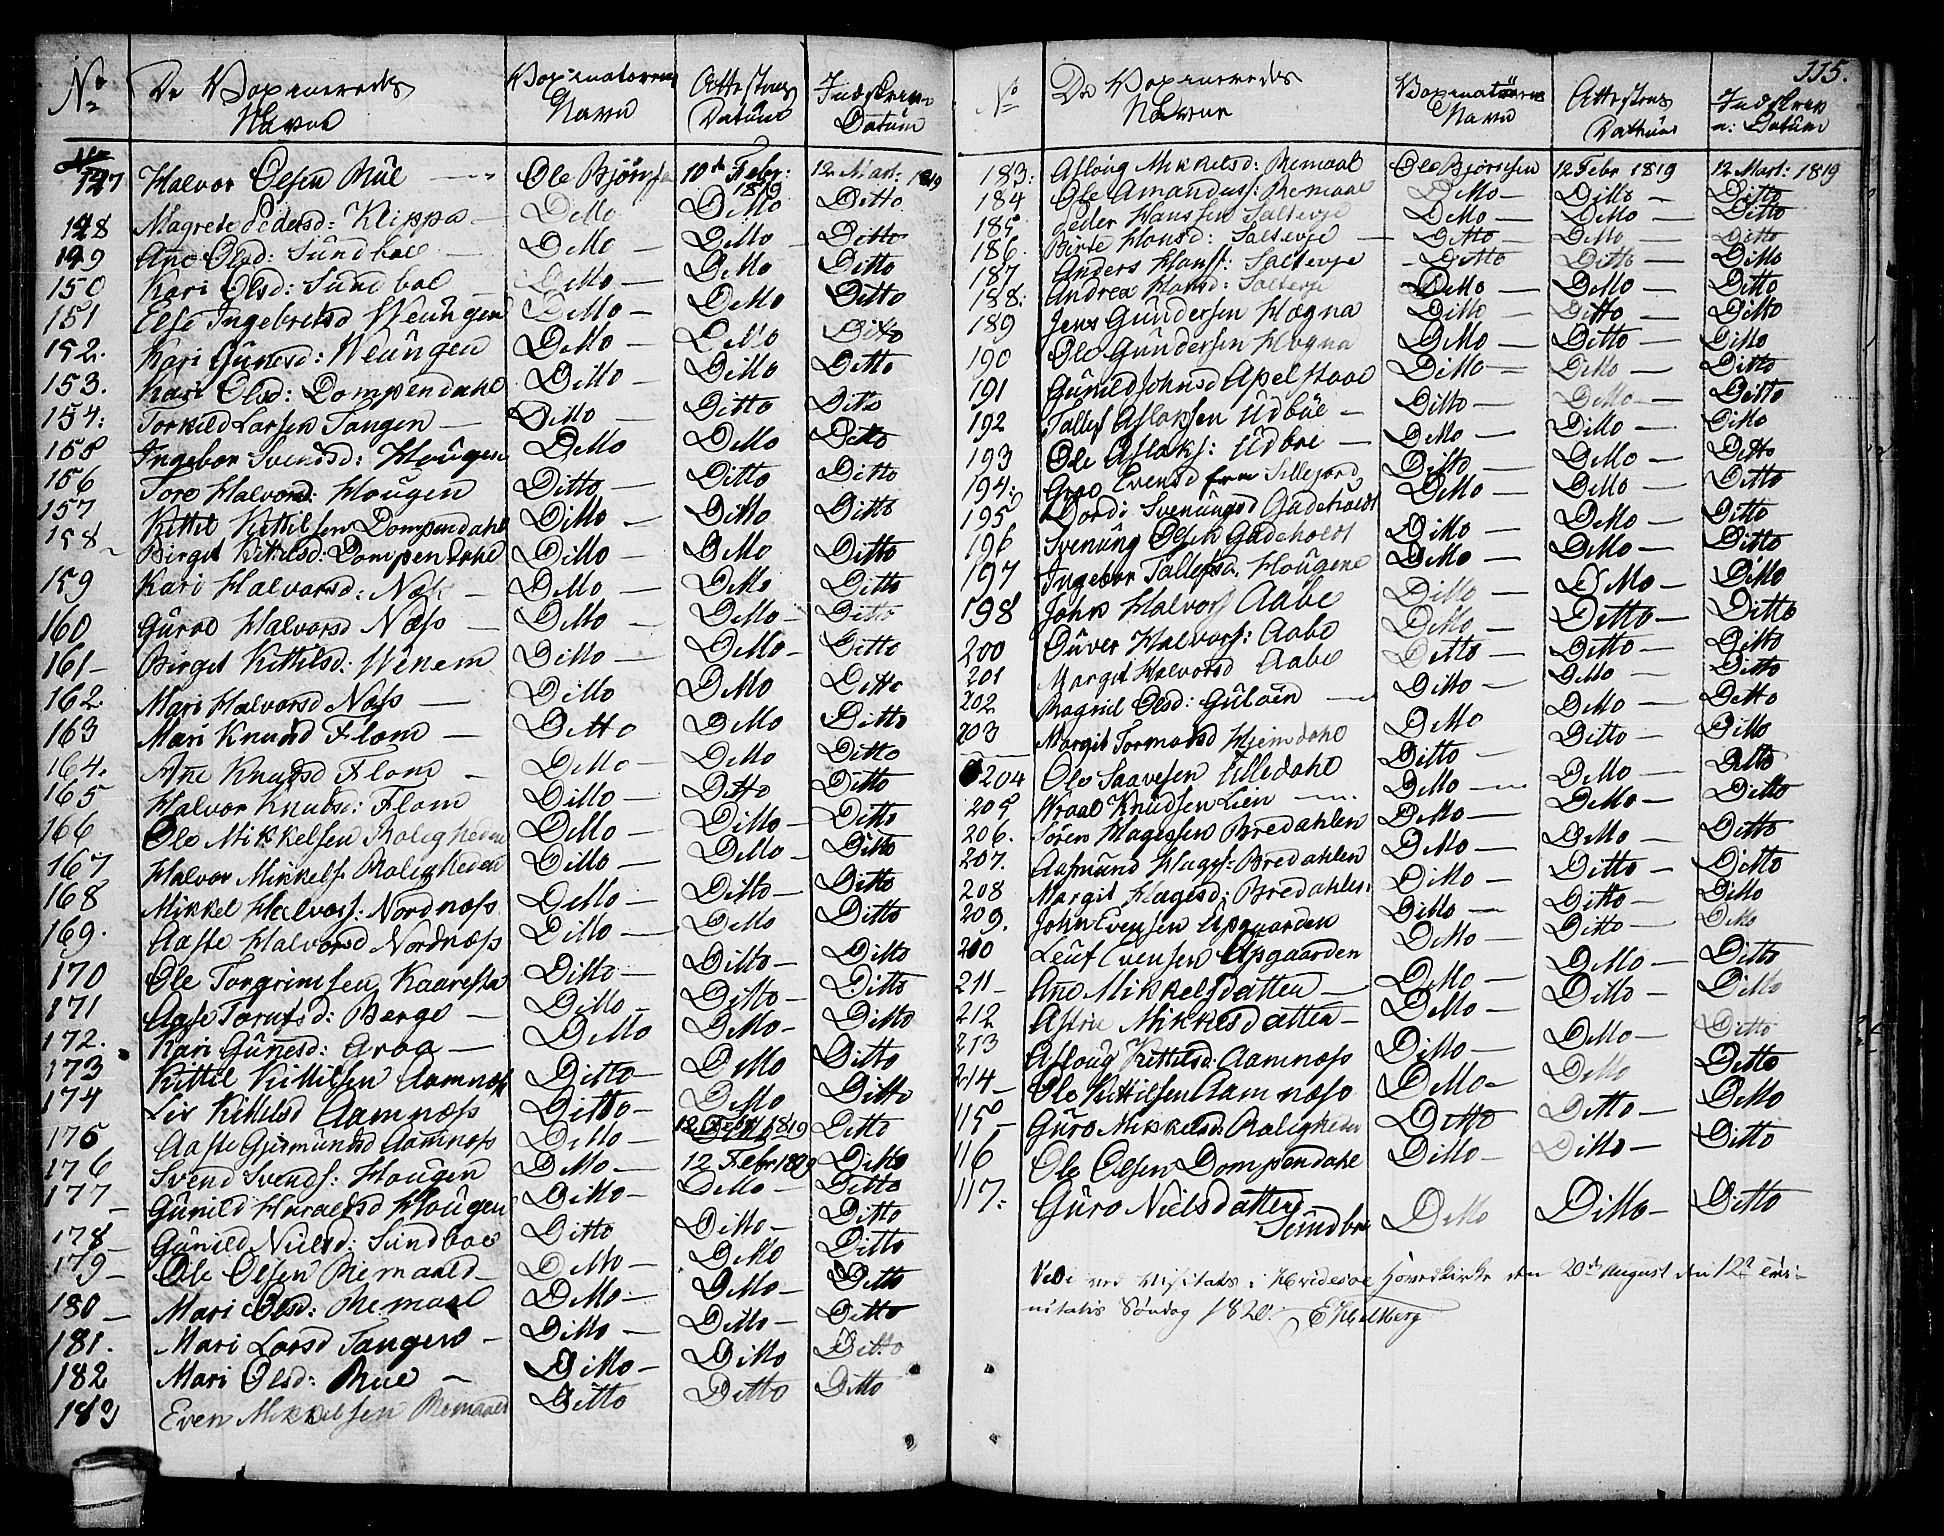 No De Vaxineredes Navne Vaxinatørens Navn Attestens Datum Indskrivn: Datum
147 Halvor Olsen Rue Ole Bjørnsen 10de Febr: 1819 12 Mart: 1819
148 Magrete Pedersd: Klippa Ditto Ditto Ditto
149 Ane Olsd: Sundboe Ditto Ditto Ditto
150 Kari Olsd: Sundboe Ditto Ditto Ditto
151 Else Ingebretsd Weungen Ditto Ditto Ditto
152. Kari Gunesd: Weungen Ditto Ditto Ditto
153. Kari Olsd: Dompendahl Ditto Ditto Ditto
154: Torkild Larsen Tangen Ditto Ditto Ditto
155 Ingebor Svendsd: Hougen Ditto Ditto Ditto
156 Tore Halvorsd: Hougen Ditto Ditto Ditto
157 Kittil Kittilsen Dompendahl Ditto Ditto Ditto
158 Birget Kittilsd: Dompendahl Ditto Ditto Ditto
159 Kari Halvorsd: Næs Ditto Ditto Ditto
160 Guroe Halvorsd Næss Ditto Ditto Ditto
161 Birget Kittilsd: Wenem Ditto Ditto Ditto
162. Mari Halvorsd Næss Ditto Ditto Ditto
163 Mari Knudsd Flom Ditto Ditto Ditto
164. Ane Knudsd Flom Ditto Ditto Ditto
165 Halvor Knuds: Flom Ditto Ditto Ditto
166 Ole Mikkelsen Roligheden Ditto Ditto Ditto
167 Halvor Mikkels. Roligheden Ditto Ditto Ditto
168 Mikkel Halvors: Nordnæss Ditto Ditto Ditto
169. Aaste Halvorsd Nordnæss Ditto Ditto Ditto
170 Ole Torgrimsen Kaaresta Ditto Ditto Ditto
171 Aase Torufsd: Berge Ditto Ditto Ditto
172. Kari Gunesd: Ditto Ditto Ditto
173 Kittil Kittilsen Aamnæss Ditto Ditto Ditto
174 Liv Kittilsd Aamnæss Ditto Ditto Ditto
175 Aaste Gjermundsd Aamnæss Ditto 12 Febr 1819 Ditto
176 Svend Svends: Hougen Ditto 12 Febr 1819 Ditto
177 Gunild Haraldsd Hougen Ditto Ditto Ditto
178 Gunild Nielsd: Sundboe Ditto Ditto Ditto
179 Ole Olsen Remaald Ditto Ditto Ditto
180 Mari Olsd: Remaal Ditto Ditto Ditto
181. Mari Larsd Tangen Ditto Ditto Ditto
182 Mari Olsd: Rue Ditto Ditto Ditto
183 Even Mikkelsen Remaald Ditto Ditto Ditto
115.
No De Vaxineredes Navne Vaxinatørens Navn Attestens Dathum Indskrivn: Datum
183: Asloug Mikkelsd: Remaal Ole Bjørnsen 12 Febr 1819 12 Mart: 1819
184 Ole Amundss: Remaal Ditto Ditto Ditto
185 Peder Hanssen Saltevje Ditto Ditto Ditto
186. Birte Hansd: Saltevje Ditto Ditto Ditto
187 Anders Hanss: Saltevje Ditto Ditto Ditto
188: Andrea Hansd: Saltevje Ditto Ditto Ditto
189 Jens Gundersen Høgna Ditto Ditto Ditto
190 Ole Gundersen Høgna Ditto Ditto Ditto
191 Gunild Johnsd Apelstaae Ditto Ditto Ditto
192 Tallef Aslaksen Udbøe Ditto Ditto Ditto
193 Ole Aslaks: Udbøe Ditto Ditto Ditto
194: Groe Evensd fra Sillejord Ditto Ditto Ditto
195 Dordi Svenungsd Gadeholdt Ditto Ditto Ditto
196 Svenung Olsen Gadeholdt Ditto Ditto Ditto
197 Ingebor Tallefsd. Hougene Ditto Ditto Ditto
198 John Halvors Aabe Ditto Ditto Ditto
200 Ouver Halvors: Aabe Ditto Ditto Ditto
201 Margit Halvorsd Aabe Ditto Ditto Ditto
202 Magnil Olsd: Guløin Ditto Ditto Ditto
203 Margit Tormodsd Hjemdahl Ditto Ditto Ditto
204 Ole Saavesen Lilledahl Ditto Ditto Ditto
205 Wraal Knudsen Lien Ditto Ditto Ditto
206. Søren Hagesen Bredahlen Ditto Ditto Ditto
207. Aasmund Hages: Bredahlen Ditto Ditto Ditto
208 Margit Hagesd: Bredahlen Ditto Ditto Ditto
209. John Evensen Opgaarden Ditto Ditto Ditto
210 Leuf Evensen Opgaarden Ditto Ditto Ditto
211 Ane Mikkelsdatten Ditto Ditto Ditto
212 Astrie Mikkelsdatten Ditto Ditto Ditto
213 Asloug Kittilsd: Aamnæss Ditto Ditto Ditto
214 Ole Kittilsen Aamnæss Ditto Ditto Ditto
115 Guro Mikkelsd Roligheden Ditto Ditto Ditto
116 Ole Olsen Dompendahl Ditto Ditto Ditto
117: Guro Nielsdatten Sundbøe Ditto Ditto Ditto
ved Visitats i Hvidesøe Hovedkirke den 20de August den 12te Tri-
nitatis Søndag 1820.